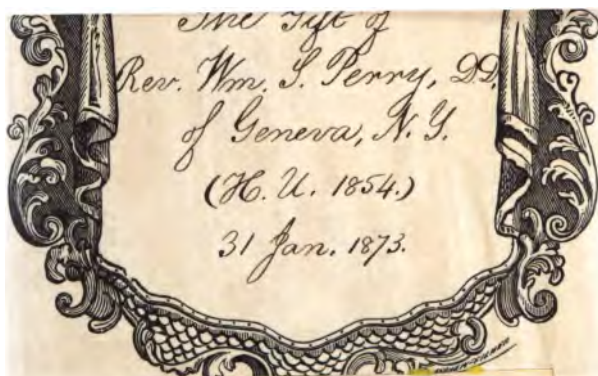 The Gift of
Rev. Wm. S. Perry, D.D.
of Geneva, N.Y.
(H. U. 1854.)
31 Jan. 1873.